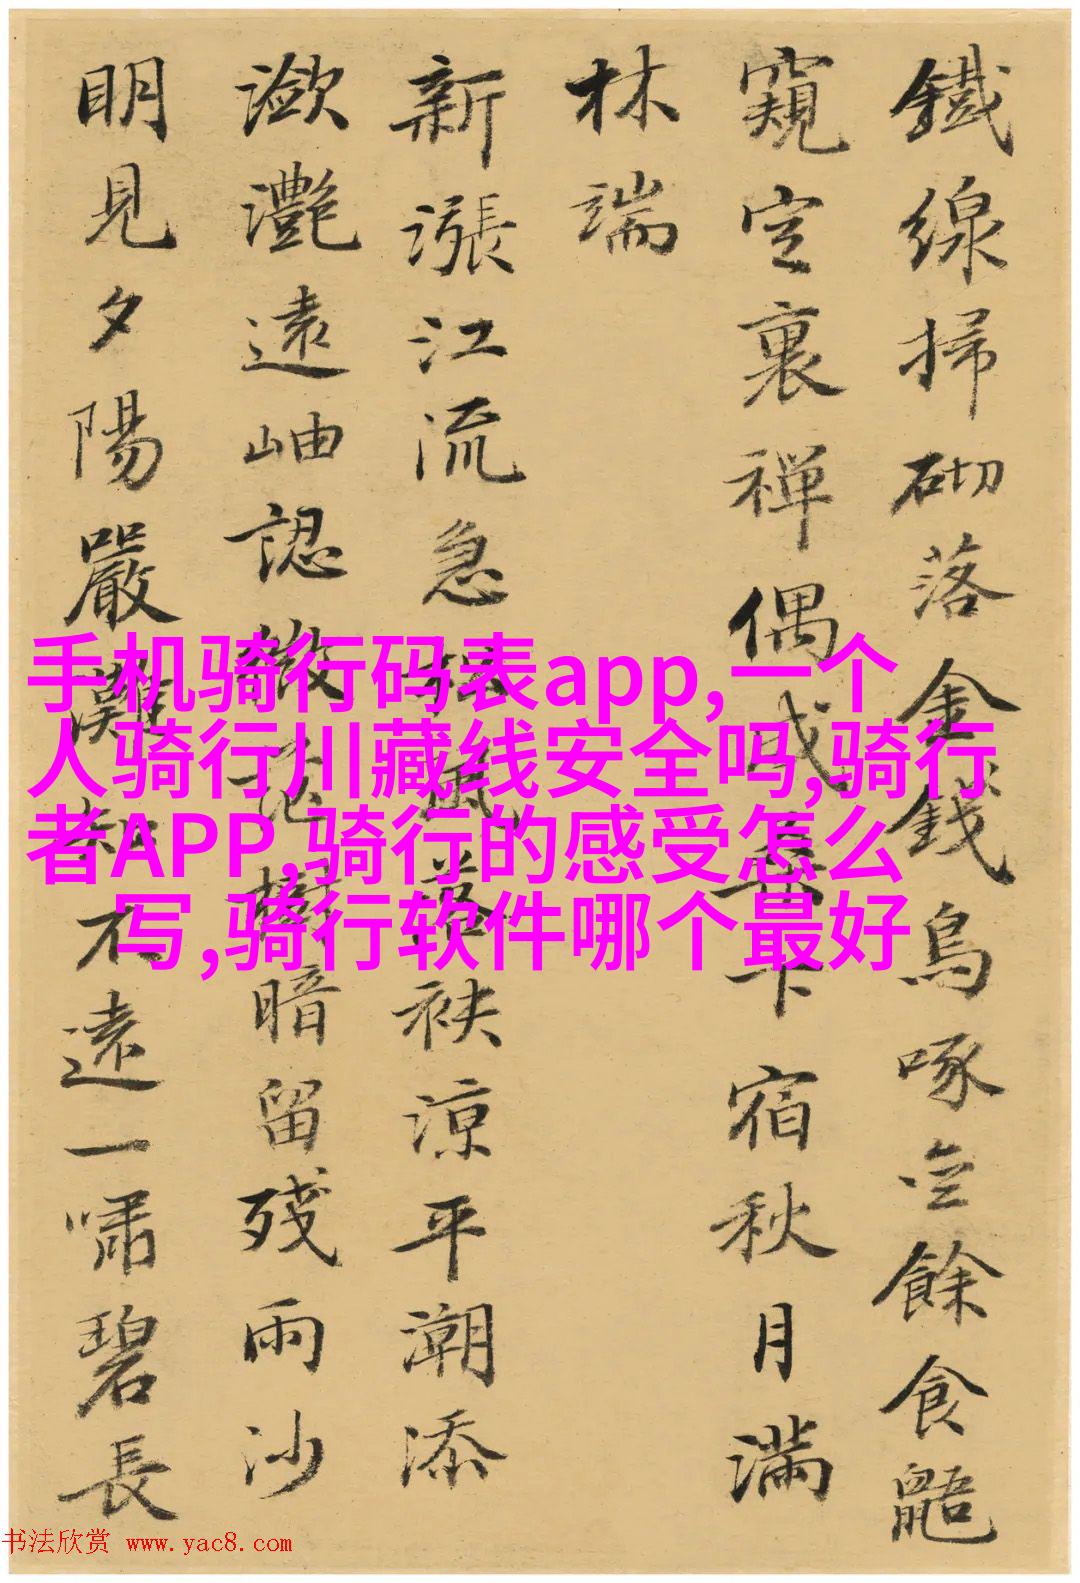 鐵線掃砌落金錢鳥啄亝餘食鼯
窺定裏禪偶成下宿秋月滿
林端
新漲江流急風落袂涼平潮添
瀲灧遠岫認微茫樹暗留殘雨沙
明見夕陽嚴灘知不遠一嘯碧長
手机骑行码表app,一个
人骑行川藏线安全吗,骑行
者APP,骑行的感受怎么
写,骑行软件哪个最好
书法欣赏 www.yac8.com